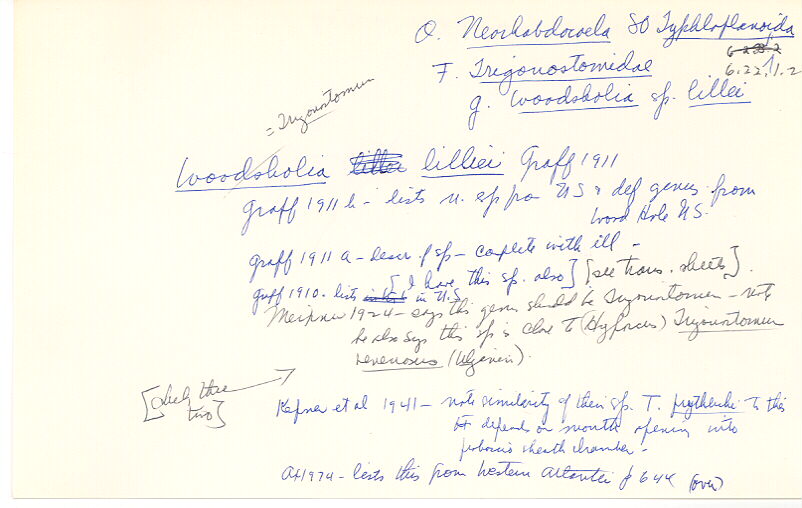 O. Neorhabdocoela SO Typhloplanoida
6.22.1.2
F. Trigonostomidae
g. Woodsholia sp. lillei
= Trigonostomum
Woodsholia lilliei Graff 1911
Graff 1911 b - lists n. sp for US & def genus from
Wood Hole US.
Graff 1911 a - descr. of sp - complete with ill -
[I have this sp. also] [see trans. sheets].
Graff 1910 - lists in U.S
Meixner 1924 - says this genus should be Trigonostomum - note
he also says this sp is close to (Hyporcus) Trigonostomum
venenosus (Uljanin).
[check these
two]
Kepner et al 1941 - note similarity of their sp. T. to this
depends on mouth opening into
proboscis sheath chamber -
Ax 1974 - lists this from western Atlantic p 644 (over)